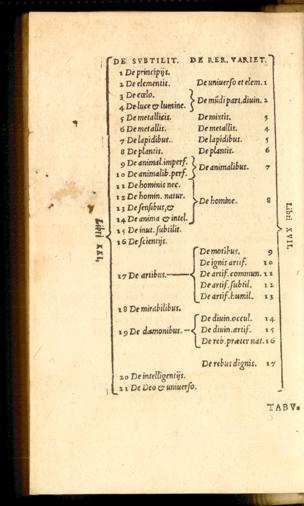 DE SVBTILIT. DE RER. VARIET.
1 De principijs.
2 De elementis. De uniuerso et elem. 1
3 De cœlo.
4 De luce & lumine. De mũdi part. diuin. 2
5 De metallicis. De mixtis. 3
6 De metallis. De metallis. 4
7 De lapidibus. De lapidibus. 5
8 De plantis. De plantis. 6
9 De animal. imperf.
10 De animalib. perf. De animalibus. 7
11 De hominis nec.
12 De homin. natur.
13 De sensibus, & De homine. 8
14 De anima & intel.
15 De inut. subtilit.
16 De scientijs.
De motibus. 9
De ignis artif. 10
17 De artibus. De artif. commun. 11
De artif. subtil. 12
De artif. humil. 13
18 De mirabilibus.
De diuin. occul. 14
19 De dæmonibus. De diuin. artif. 15
De reb. præter nat. 16
De rebus dignis. 17
20 De intelligentijs.
21 De Deo & uniuerso.
Libri XXI,
Libri XVII.
TABVs